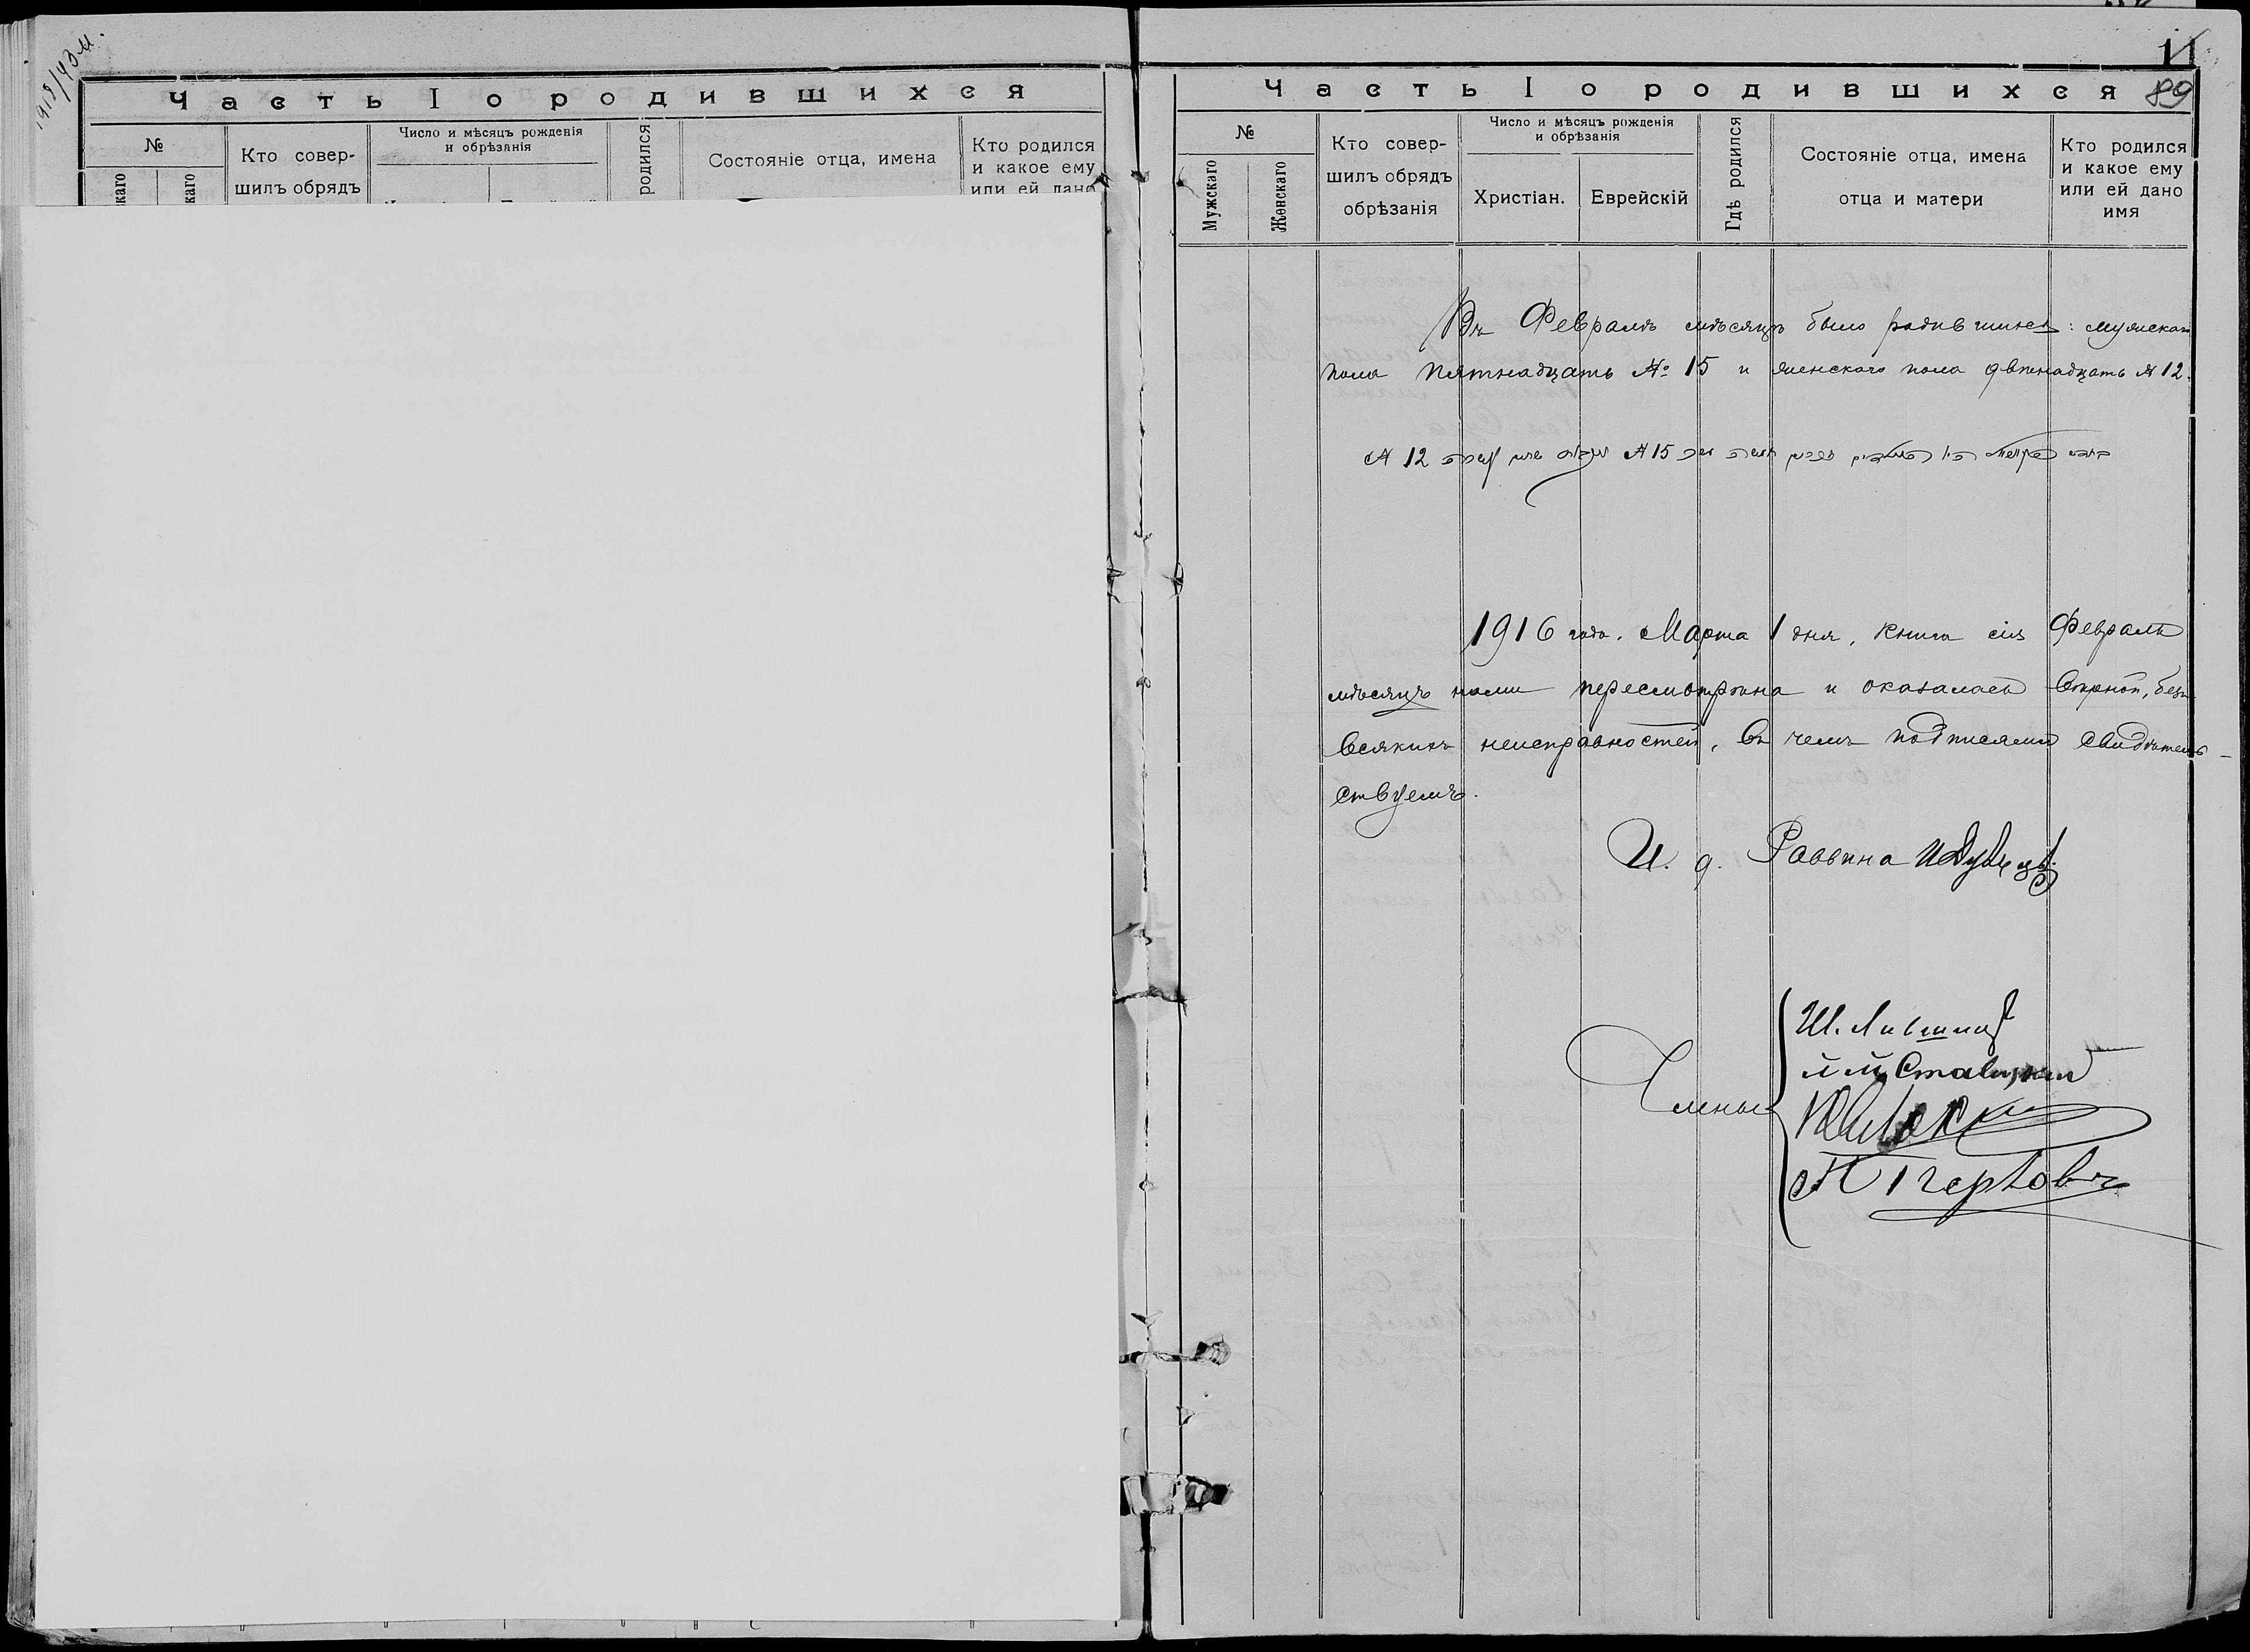 1918/43 м.
Часть I о родившихся
№
Кто совер-
шилъ обрядъ
Число и мѣсяцъ рожденія
и обрѣзанія
родился
Состояніе отца, имена
Кто родился
и какое ему
или ей дано
каго
каго
11
Часть I о родившихся
89
№
Мужскаго
Женскаго
Кто совер-
шилъ обрядъ
обрѣзанія
Число и мѣсяцъ рожденія
и обрѣзанія
Христіан.
Еврейскій
Гдѣ родился
Состояніе отца, имена
отца и матери
Кто родился
и какое ему
или ей дано
имя
Въ Февралѣ мѣсяцѣ было родившихся: мужскаго
пола пятнадцать № 15 и женскаго пола двѣнадцать № 12.
№ 15
№ 12
1916 года. Марта 1 дня, книга сія Февраль
мѣсяцъ нами пересмотрѣна и оказалась вѣрной, безъ
всякихъ неисправностей, въ чемъ подписями свидѣтель-
ствуемъ.
И. д. Раввина
Члены
Ш. Лившиц
Ставицкий